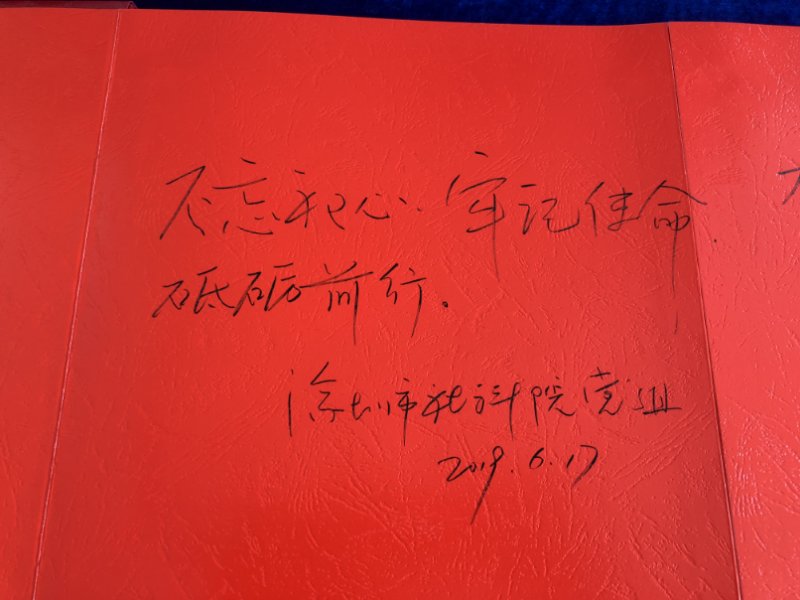 不忘初心、牢记使命，
砥砺前行。
深圳市社科院党组
2019.6.17